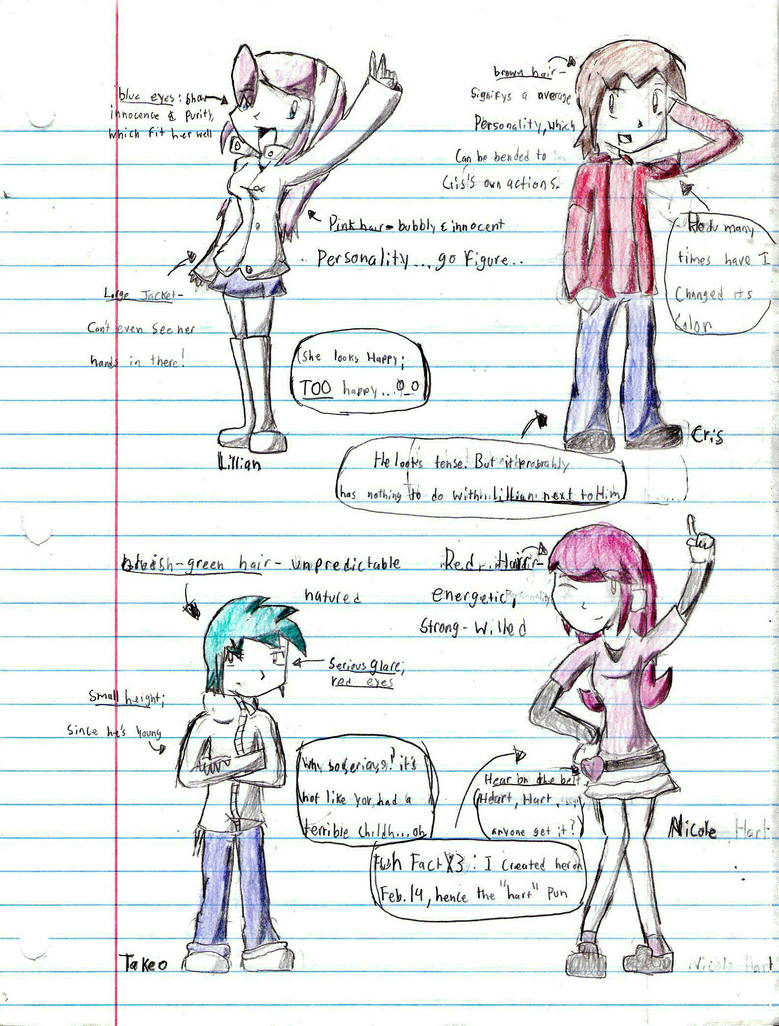 blue eyes: show
innocence & purity,
which fit her well
Pink hair = bubbly & innocent
Personality...go figure..
Large Jacket-
Can't even see her
hands in there!
(She looks Happy;
TOO happy...O_O
Lillian
brown hair-
Signifys a average
Personality, which
Can be bended to
Cris's own actions.
How many
times have I
Changed its
Color
Cris
He looks tense. But it probrably
has nothing to do with Lillian next to Him
-green hair- unpredictable
natured
Serious glare;
red eyes
Small height;
Since he's young
Why so serious? it's
not like you had a
terrible childh...oh
Takeo
Red Hair-
energetic,
Strong-Willed
Hear on the belt
Heart, Hart,
anyone get it?
Fact X3: I created her on
Feb. 14, hence the "hart" pun
Nicole Hart
Nicole Hart